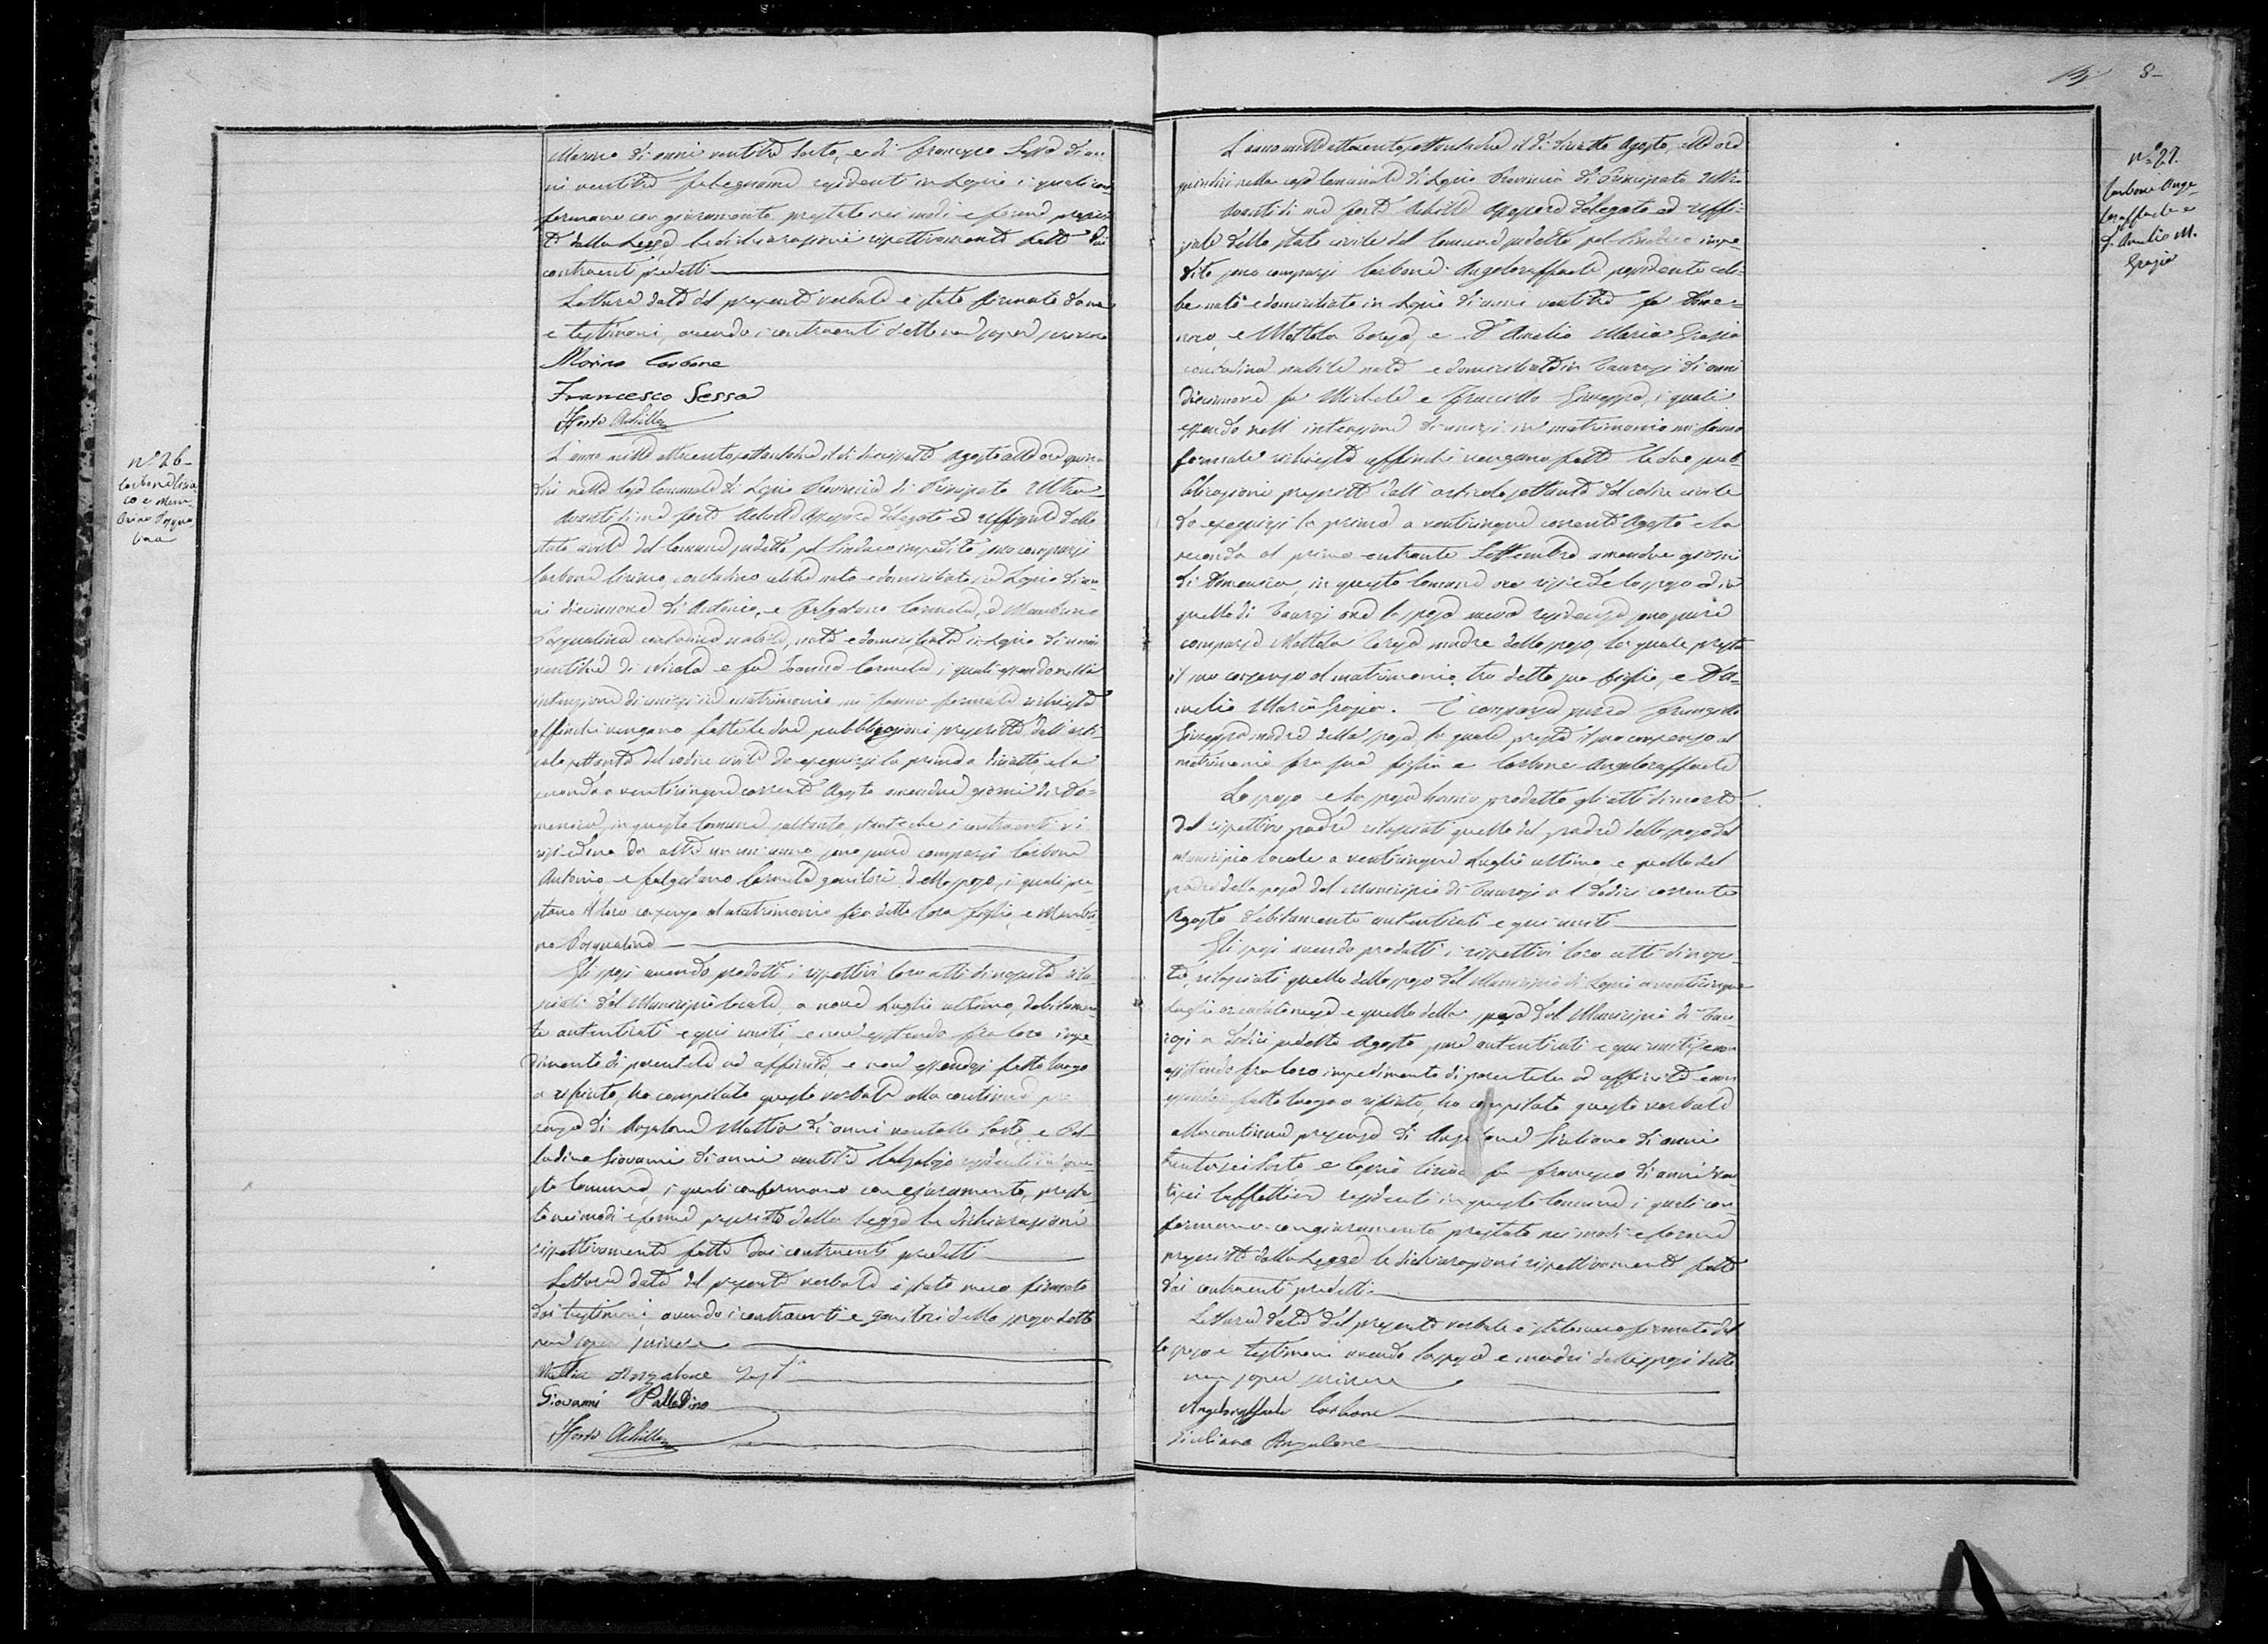 Marino di anni ventitre sarto, e di Francesco Sessa di an-
ni ventitre falegname residenti in Lapio i quali con-
fermano con giuramento prestato nei modi e forme prescrit-
te dalla Legge le dichiarazioni rispettivamente fatte dai
contraenti predetti
Lettura data del presente verbale è stato firmato da me
e testimoni, avendo i contraenti detto non saper scrivere
Marino Carbone
Francesco Sessa
Forte Achille
Nº 26
Carbone Ciria-
co e Mam-
brino Pasqua-
lina
L'anno mille ottocento settantadue il dì diciassette Agosto alle ore quin-
dici nella Casa Comunale di Lapio Provincia di Principato Ultra
Avanti di me Forte Achille Assessore delegato ed Uffiziale dello
stato civile del Comune sudetto pel Sindaco impedito sono comparsi
Carbone Ciriaco, contadino celibe nato e domiciliato in Lapio di an-
ni diecinnove di Antonio, e Carmela, e Mambrino
Pasqualina contadina nubile, nata e domiciliata in Lapio di anni
ventidue di Nicola e fu Carmela, i quali essendo nella
intenzione di unirsi in matrimonio mi fanno formale richiesta
affinchè vengano fatte le due pubblicazioni prescritte dall'arti-
colo settanta del codice civile da eseguirsi la prima a diciotto, e la
seconda a venticinque corrente Agosto amendue giorni di Do-
menica, in questo Comune soltanto, stante che i contraenti vi
risiedono da oltre un anno sono pure comparsi Carbone
Antonio e Carmela genitori dello sposo, i quali pre-
stano il loro consenso al matrimonio fra detto loro figlio, e Mambri-
no Pasqualina
Gli sposi avendo prodotti i rispettivi loro atti di nascita rila-
sciati dal Municipio locale, a nove Luglio ultimo, debitamen-
te autenticati e qui uniti, e non esistendo fra loro impe-
dimento di parentela od affinità, e non essendosi fatto luogo
a rifiuto, ho compilato questo verbale alla continua pre-
senza di Angelone Mattia di anni ventotto sarto, e Pal-
ladino Giovanni di anni ventitre calzolajo residenti in que-
sto Comune, i quali confermano con giuramento, presta-
to nei modi e forme prescritte dalla Legge le dichiarazioni
rispettivamente fatte dai contraenti predetti
Lettura data del presente verbale è stato meco firmato
dai testimoni, avendo i contraenti e genitori dello sposo detto
non saper scrivere
Mattia Angalone
Giovanni Palladino
Forte Achille
8
Nº 27.
Carbone Ange-
loraffaele e
D'Amelio M.
Grazia
L'anno mille ottocento settantadue il dì diciotto Agosto, alle ore
quindici nella casa Comunale di Lapio Provincia di Principato Ultra
Avanti di me Forte Achille Assessore delegato ed Uffi-
ziale dello stato civile del Comune sudetto pel Sindaco impe-
dito sono comparsi Carbone Angeloraffaele possidente celi-
be nato e domiciliato in Lapio di anni ventitre fu Dome-
nico, e Mottola Teresa, e D'Amelio Maria Grazia
contadina nubile nata e domiciliata in Taurasi di anni
diecinnove fu Michele e Giuseppa, i quali
essendo nell'intenzione di unirsi in matrimonio mi fanno
formale richiesta affinchè vengano fatte le due pub-
blicazioni prescritte dall'articolo settanta del codice civile
da eseguirsi la prima a venticinque corrente Agosto e la
seconda al primo entrante Settembre amendue giorni
di Domenica, in questo Comune ove risiede lo sposo ed in
quello di Taurasi ove la sposa mena residenza, sono pure
comparsa Mottola Teresa madre dello sposo, la quale presta
il suo consenso al matrimonio tra detto suo figlio, e D'A-
melio Maria Grazia. È comparsa pure
Giuseppa madre della sposa, la quale presta il suo consenso al
matrimonio fra sua figlia e Carbone Angeloraffaele
Lo sposo e la sposa hanno prodotto gli atti di morte
del rispettivo padre rilasciati quello del padre dello sposo dal
Municipio locale a venticinque Luglio ultimo e quello del
padre della sposa dal Municipio di Taurasi a dodici corrente
Agosto debitamente autenticati e qui uniti
Gli sposi avendo prodotti i rispettivi loro atti di nasci-
ta, rilasciati quello dello sposo dal Municipio di Lapio a venticinque
Luglio e quello della sposa dal Municipio di Tau-
rasi a dodici sudetto Agosto pure autenticati e qui uniti, e non
esistendo fra loro impedimento di parentela od affinità e non
essendosi fatto luogo a rifiuto, ho compilato questo verbale
alla continua presenza di Angelone Giuliano di anni
trentasei sarto e Ciriaco fu Francesco di anni ven-
tisei caffettiere residenti in questo Comune i quali con-
fermano con giuramento prestato nei modi e forme
prescritte dalla Legge le dichiarazioni rispettivamente fatte
dai contraenti predetti
Lettura data del presente verbale è stato meco firmato dal-
lo sposo e testimoni avendo la sposa e madri dello sposi detto
non saper scrivere
Angeloraffaele Carbone
Giuliano Angalone